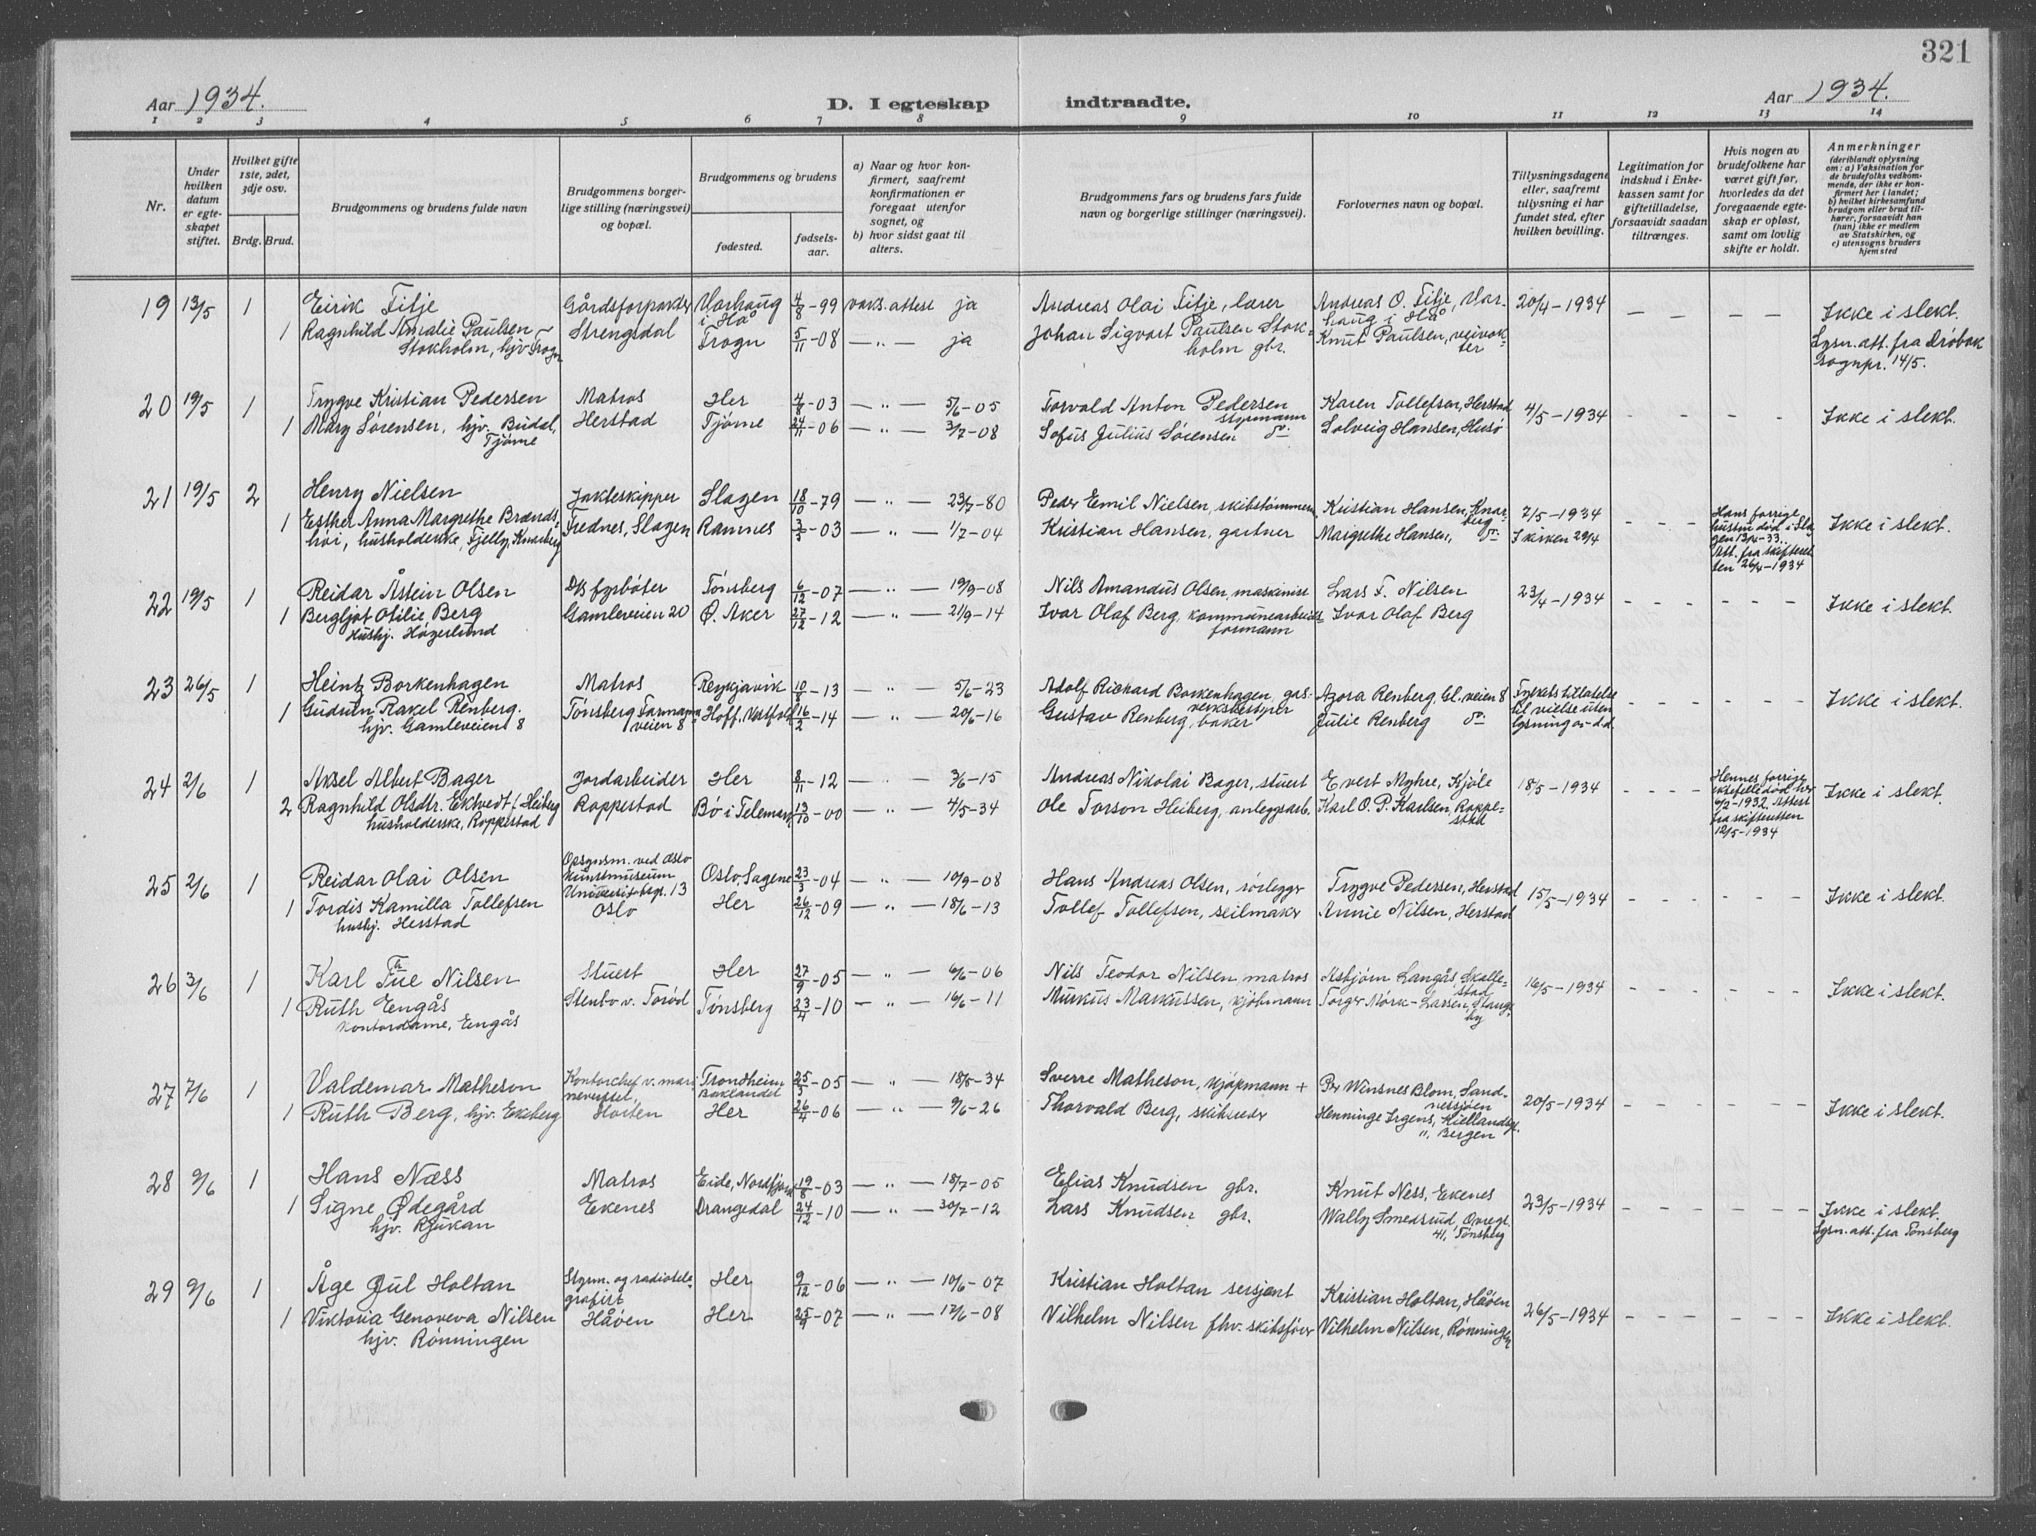 321
Aar 1934.
D. I egteskap indtraadte.
Aar 1934.
1 2 3 4 5 6 7 8 9 10 11 12 13 14
Nr.
Under hvilken datum er egteskapet stiftet.
Hvilket gifte 1ste, 2det, 3dje osv.
Brdg. Brud.
Brudgommens og brudens fulde navn
Brudgommens borgerlige stilling (næringsvei) og bopæl.
Brudgommens og brudens
fødested.
fødselsaar.
a) Naar og hvor konfirmert, saafremt konfirmationen er foregaat utenfor sognet, og
b) hvor sidst gaat til alters.
Brudgommens fars og brudens fars fulde navn og borgerlige stillinger (næringsvei).
Forlovernes navn og bopæl.
Tillysningsdagene eller, saafremt tillysning ei har fundet sted, efter hvilken bevilling.
Legitimation for indskud i Enkekassen samt for giftetilladelse, forsaavidt saadan tiltrænges.
Hvis nogen av brudefolkene har været gift før, hvorledes da det foregaaende egteskap er opløst, samt om lovlig skifte er holdt.
Anmerkninger
(deriblandt oplysning om: a) Vaksination for de brudefolks vedkommende, der ikke er konfirmert her i landet; b) hvilket kirkesamfund brudgom eller brud tilhører, forsaavidt han (hun) ikke er medlem av Statskirken, og c) utensogns bruders hjemsted
19 13/5 1 Eirik Fitje Gårdsforpakter Varhaug i Hå 4/8-99 vaks. attest ja Andreas Olai Fitje, lærer Andreas O. Fitje, Varhaug i Hå 20/4-1934 Ikke i slekt.
1 Ragnhild Amalie Paulsen Stokholm, hjv. Frogn Strengsdal Frogn 5/11-08 — " — ja Johan Sigvart Paulsen Stokholm gbr. Knut Paulsen, veivokter Lysn. att. fra Drøbak sognpr. 14/5.
20 19/5 1 Trygve Kristian Pedersen Matros Her 4/8-03 — " — 5/6-05 Torvald Anton Pedersen stopmann Karen Tollefsen, Herstad 4/5-1934 Ikke i slekt.
1 Mary Sørensen, hjv. Budal, Tjøme Herstad Tjøme 24/11-06 — " — 3/7-08 Sofus Julius Sørensen do Solveig Hansen, Husø
21 19/5 2 Henry Nielsen Jakteskipper Slagen 18/10-79 — " — 23/7-80 Peder Emil Nielsen, skibstømmerm Kristian Hansen, Knarberg 7/5-1934 Hans forrige hustru død i Slagen 13/4-33. Att. fra skifteretten 26/4-1934 Ikke i slekt.
1 Esther Anna Margrethe Brændshøi, husholderske, Fjelly, Knarberg Trednes, Slagen Ramnes 3/3-03 — " — 1/7-04 Kristian Hansen, gartner Margrethe Hansen, do I kirken 29/4
22 19/5 1 Reidar Åstein Olsen D/S fyrbøter Tønsberg 6/12-07 — " — 19/9-08 Nils Amandus Olsen, maskinist Lars F. Nilsen 23/4-1934 Ikke i slekt.
1 Bergljot Otilie Berg Hushj. Høgerlund Gamleveien 20 Ø. Aker 27/12-12 — " — 21/9-14 Ivar Olaf Berg, kommunearbeids formann Ivar Olaf Berg
23 26/5 1 Heintz Borkenhagen Matros Reykjavik 10/8-13 — " — 5/6-23 Adolf Richard Borkenhagen, gasverksbestyrer Agora Renberg, Gl. veien 8 Fylkets tillatelse til vielse uten lysning av d.d. Ikke i slekt.
1 Gudrun Rakel Renberg. hjv. Gamleveien 8 Tønsberg Farmannsveien 8 Hoff, Vestfold 16/2-14 — " — 20/6-16 Gustav Renberg, baker Julie Renberg do
24 2/6 1 Aksel Albert Bager Jordarbeider Her 8/11-12 — " — 3/6-15 Andreas Nikolai Bager, stuert Evert Myhre, Kjøle 18/5-1934 Hennes forrige ektefelle død her 6/2-1932. Attest fra skifteretten 12/5-1934 Ikke i slekt.
2 Ragnhild Olsdtr. Ektvedt f. Heiberg husholderske, Roppestad Roppestad Bø i Telemark 13/10-00 — " — 4/5-34 Ole Torson Heiberg, anleggsarb. Karl O. P. Karlsen, Roppestad
25 2/6 1 Reidar Olai Olsen Opsynsm. ved Oslo Kunstmuseum Universitetsgt. 13 Oslo Oslo, Sagene 23/3-04 — " — 10/9-08 Hans Andreas Olsen, rørlegger Trygve Pedersen, Herstad 15/5-1934 Ikke i slekt.
1 Tordis Kamilla Tollefsen hushj. Herstad Her 26/12-09 — " — 18/6-13 Tollef Tollefsen, seilmaker Annie Nilsen, Herstad
26 3/6 1 Karl Thue Nilsen Stuert Her 27/9-05 — " — 6/6-06 Nils Teodor Nilsen matros Asbjørn Langås, Skallestad 16/5-1934 Ikke i slekt.
1 Ruth Engås Kontordame, Engås Stenbo v. Torød Tønsberg 23/4-10 — " — 16/6-11 Markus Markussen, kjøbmann Torger Mørk-Larsen, Slangsby
27 7/6 1 Valdemar Matheson Kontorchef v. marinevestet, Horten Trondheim Baklandet 25/3-05 — " — 18/5-34 Sverre Matheson, kjøpmann + Per Winsnes Blom, Sandnessjøen 20/5-1934 Ikke i slekt.
1 Ruth Berg, hjv. Ekeberg Her 26/4-06 — " — 9/6-26 Thorvald Berg, skibsreder Henninge Irgens, Kiellandsgt. 11, Bergen
28 9/6 1 Hans Næss Matros Eide, Nordfjord 19/8-03 — " — 18/7-05 Elias Knudsen gbr. Knut Ness, Ekenes 23/5-1934 Ikke i slekt. Lysn. att. fra Tønsberg
1 Signe Ødegård hjv. Rjukan Ekenes Drangedal 24/12-10 — " — 30/7-12 Lars Knudsen gbr. Wally Smedsrud, Ovregt. 41, Tønsberg
29 9/6 1 Åge Jul Holtan Styrm. og radiotelegrafist Her 9/12-06 — " — 10/6-07 Kristian Holtan sersjant Kristian Holtan, Håøen 26/5-1934 Ikke i slekt.
1 Viktoria Genoveva Nilsen hjv. Rønningen Håøen Her 25/9-07 — " — 17/6-08 Vilhelm Nilsen fhv. skibsfører Vilhelm Nilsen, Rønningen